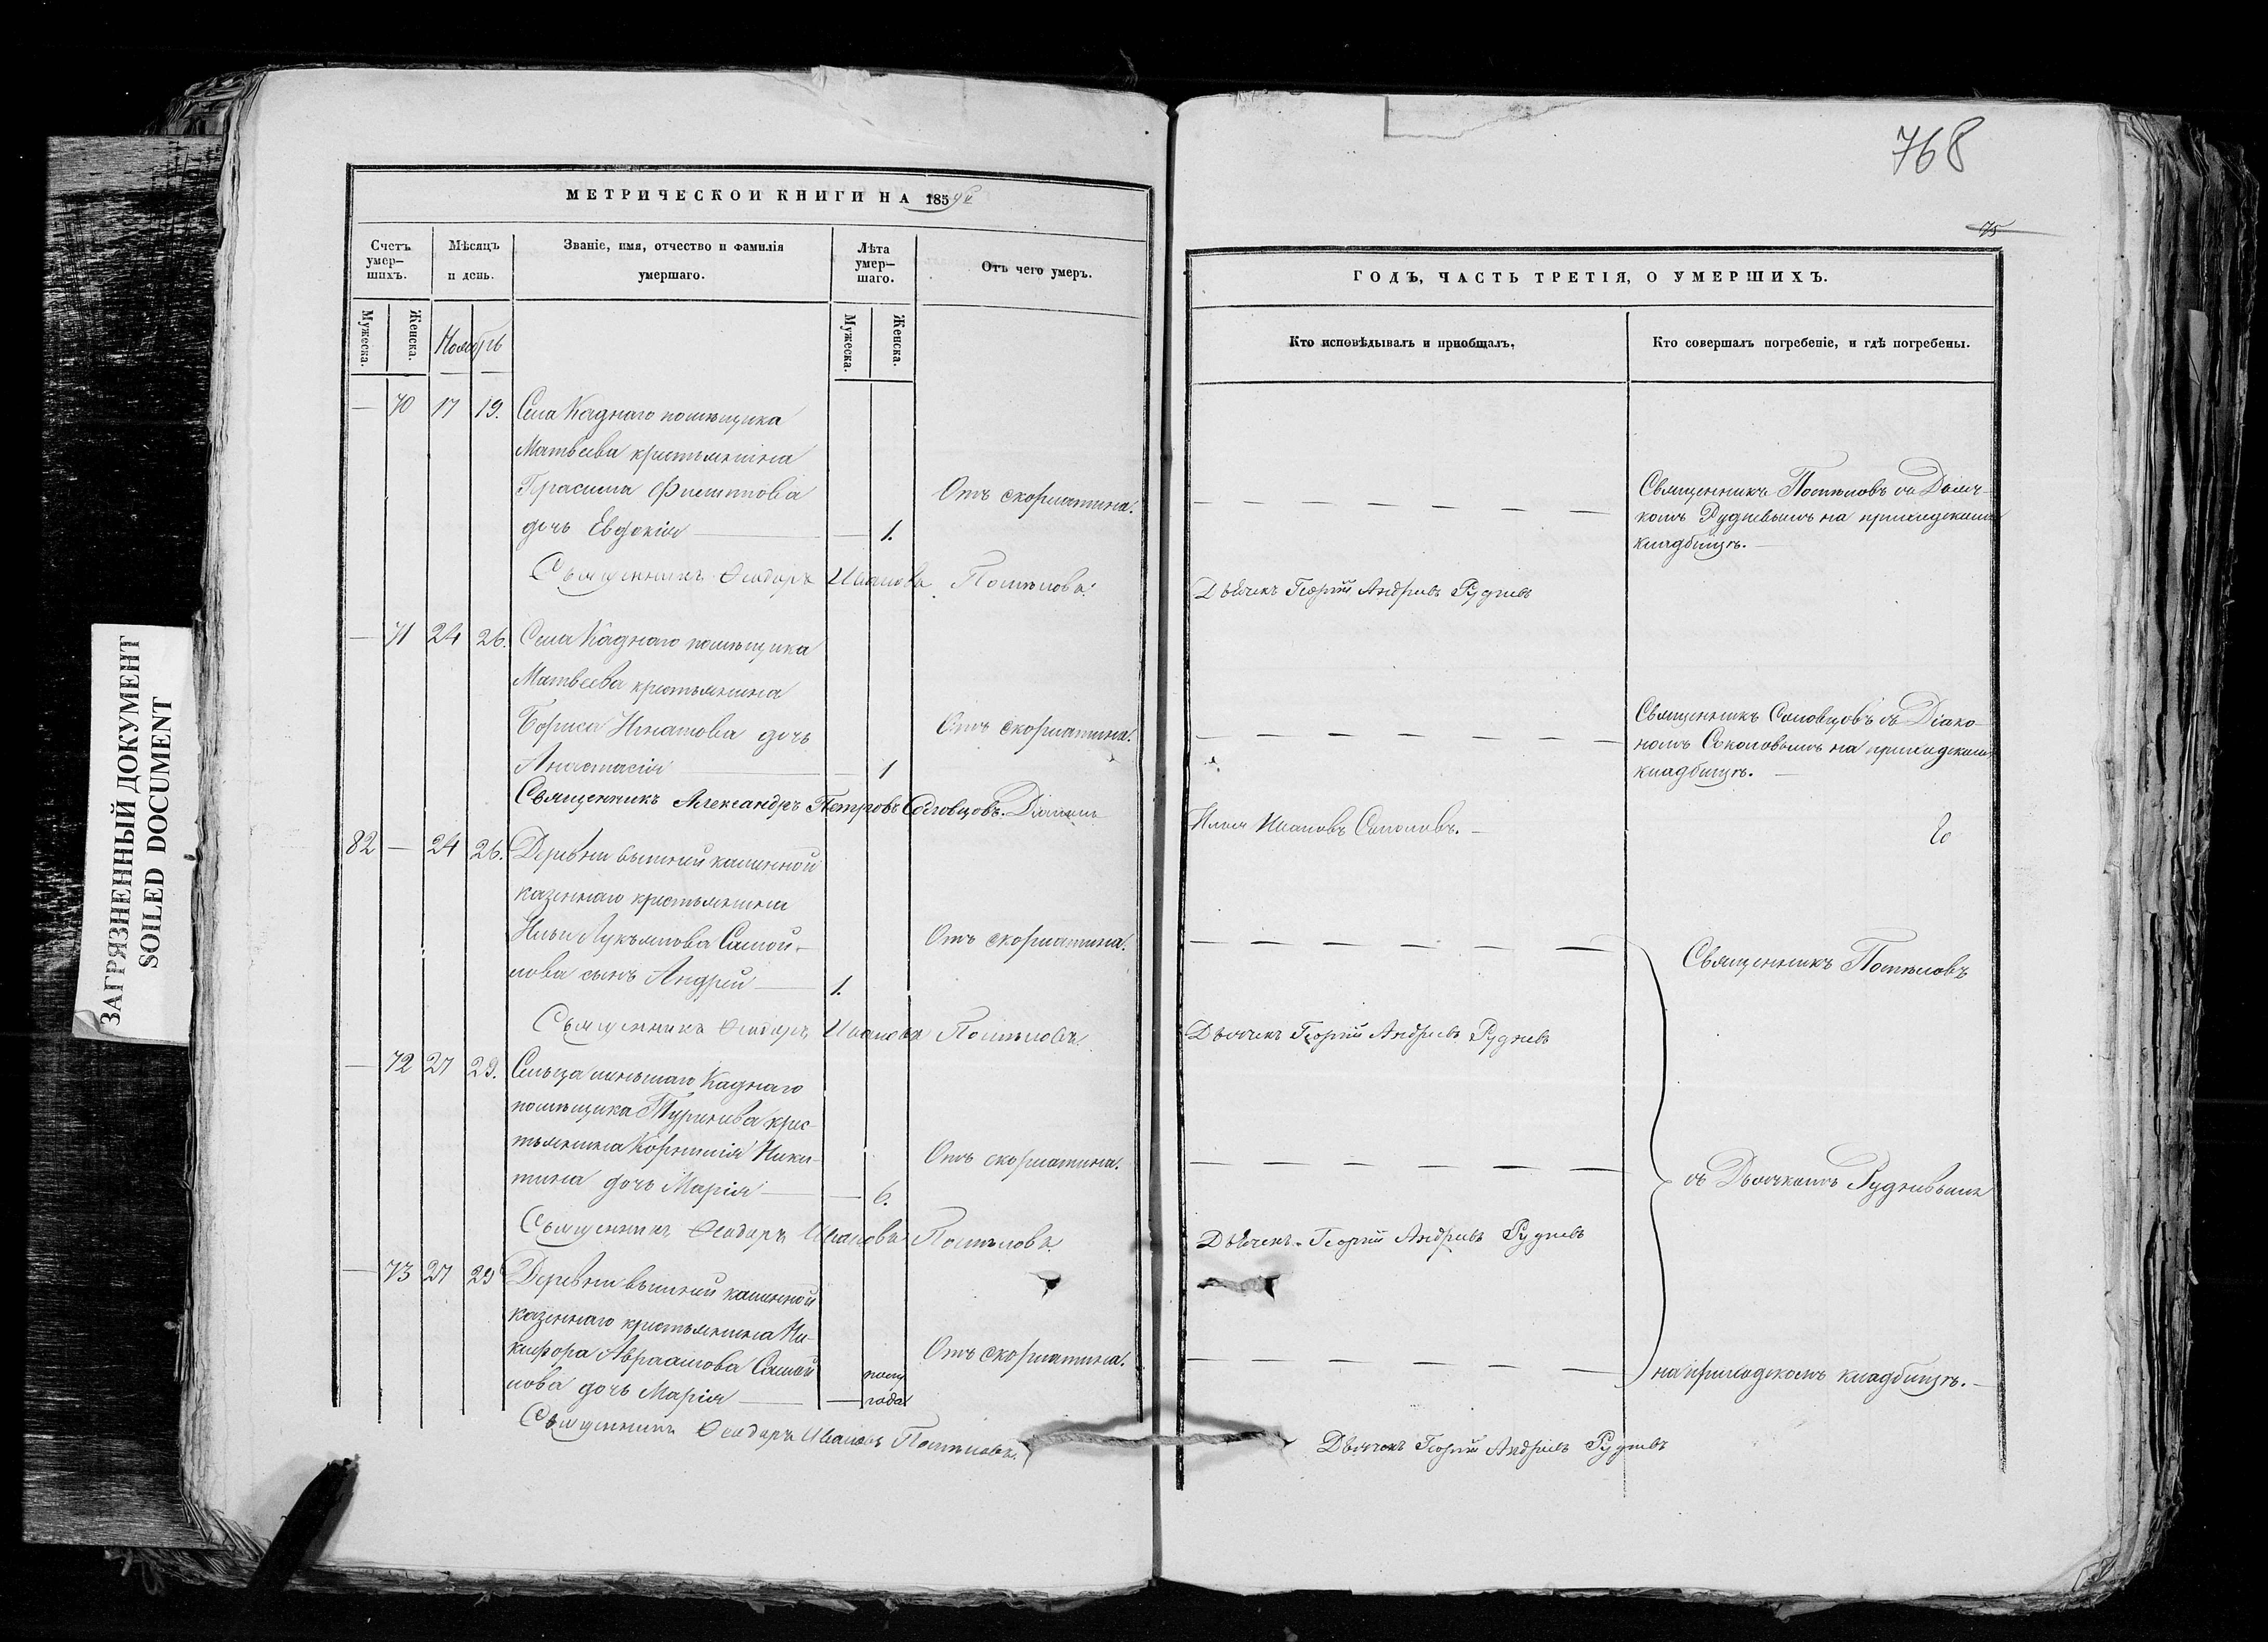 768
75
ЗАГРЯЗНЕННЫЙ ДОКУМЕНТ
SOILED DOCUMENT
МЕТРИЧЕСКОЙ КНИГИ НА 185
Счетъ умер–шихъ.
Мѣсяцъ и день.
Званіе, имя, отчество и фамилія умершаго.
Лѣта умер–шаго.
Отъ чего умеръ.
Мужеска.
Женска.
Ноябрь
Мужеска.
Женска.
— 70 17 19. Села Каднаго помѣщика
Матвѣева крестьянина
Герасима Филиппова
дочь Евдокія — — 1.
Отъ скорлатина.
Священникъ Ѳеодоръ Ивановъ Поспѣловъ.
— 71 24 26. Села Каднаго помѣщика
Матвѣева крестьянина
Бориса Игнатова дочь
Анастасія — — 1
Отъ скорлатина.
Священникъ Александръ Петровъ Соловцовъ. Діаконъ
82 — 24 26. Деревни вышней каменной
казеннаго крестьянина
Ильи Лукьянова Самой-
лова сынъ Андрей — 1.
Отъ скорлатина.
Священникъ Ѳеодоръ Ивановъ Поспѣловъ.
— 72 27 29. Сельца меньшаго Каднаго
помѣщика Тургенева крес-
тьянина Корнилія Ники-
тина дочь Марія — — 6.
Отъ скорлатина.
Священникъ Ѳеодоръ Ивановъ Поспѣловъ.
— 73 27 29 Деревни вышней каменной
казеннаго крестьянина Ни-
кифора Авраамова Самой
лова дочь Марія — — полу
года
Отъ скорлатина.
Священникъ Ѳеодоръ Ивановъ Поспѣловъ.
ГОДЪ, ЧАСТЬ ТРЕТІЯ, О УМЕРШИХЪ.
Кто исповѣдывалъ и пріобщалъ.
Кто совершалъ погребеніе, и гдѣ погребены.
Священникъ Поспѣловъ съ Дьяч-
комъ Рудневымъ на приходскомъ
кладбищѣ. —
Дьячекъ Георгій Андреевъ Рудневъ
Священникъ Соловцовъ съ Діако-
номъ Соколовымъ на приходскомъ
кладбищѣ. —
Илья Ивановъ Соколовъ. —
Священникъ Поспѣловъ
Дьячекъ Георгій Андреевъ Рудневъ
съ Дьячкомъ Рудневымъ
Дьячекъ Георгій Андреевъ Рудневъ
на приходскомъ кладбищѣ. —
Дьячекъ Георгій Андреевъ Рудневъ